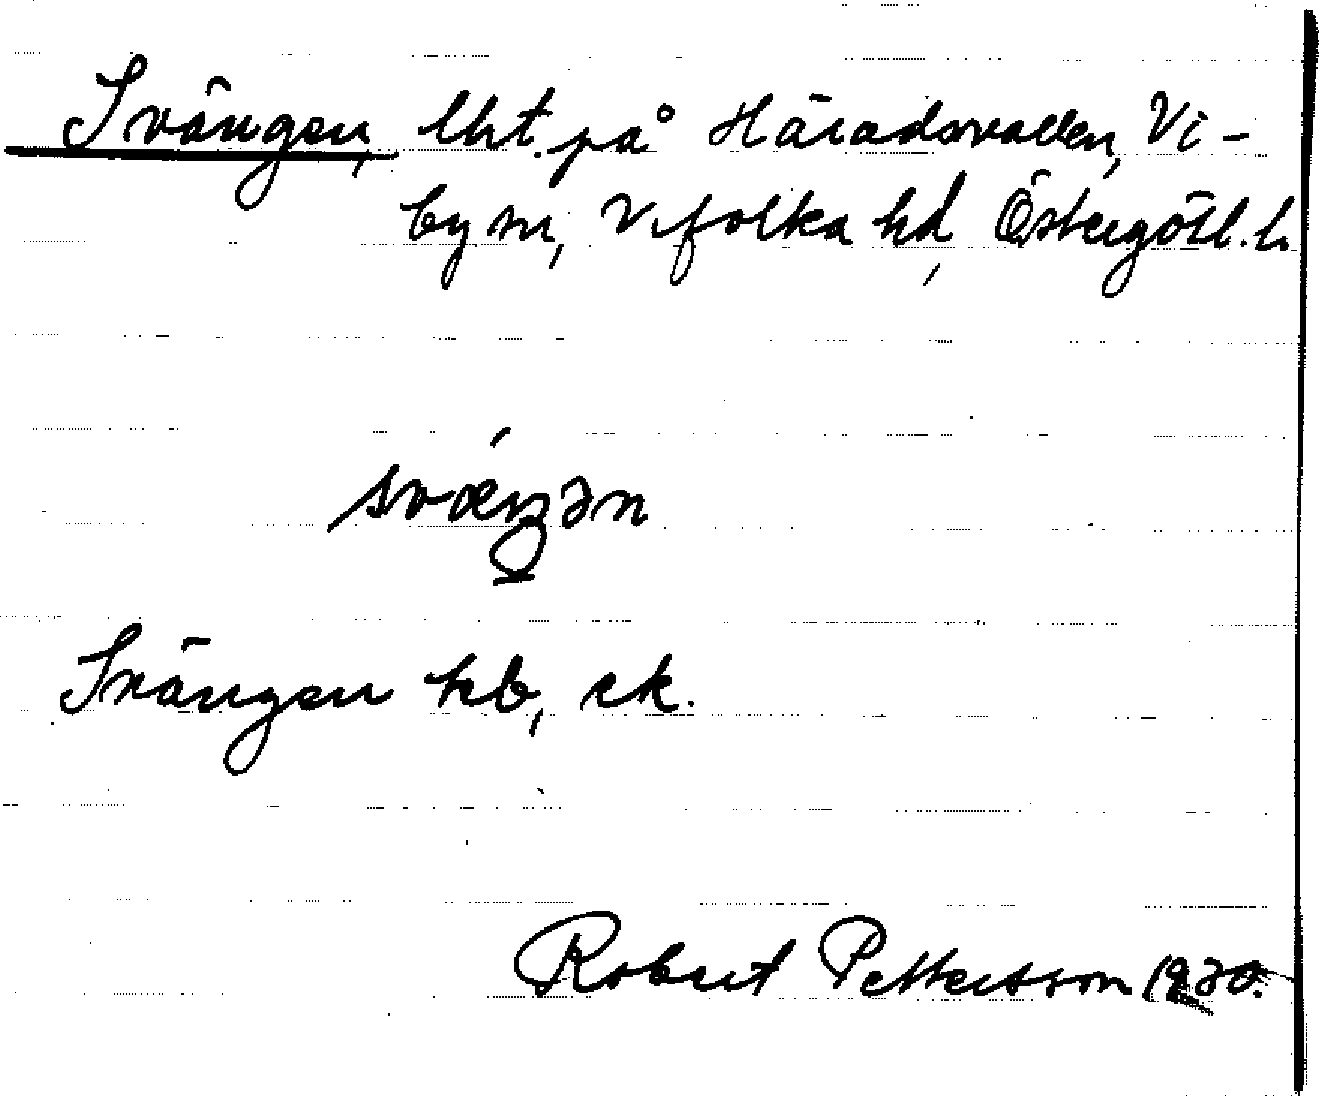 Svängen, lht. på Häradsvallen, Vi-
by sn, Vifolka hd, Östergötl. l.
svæŋən
Svängen kb, ek.
Robert Pettersson 1930.